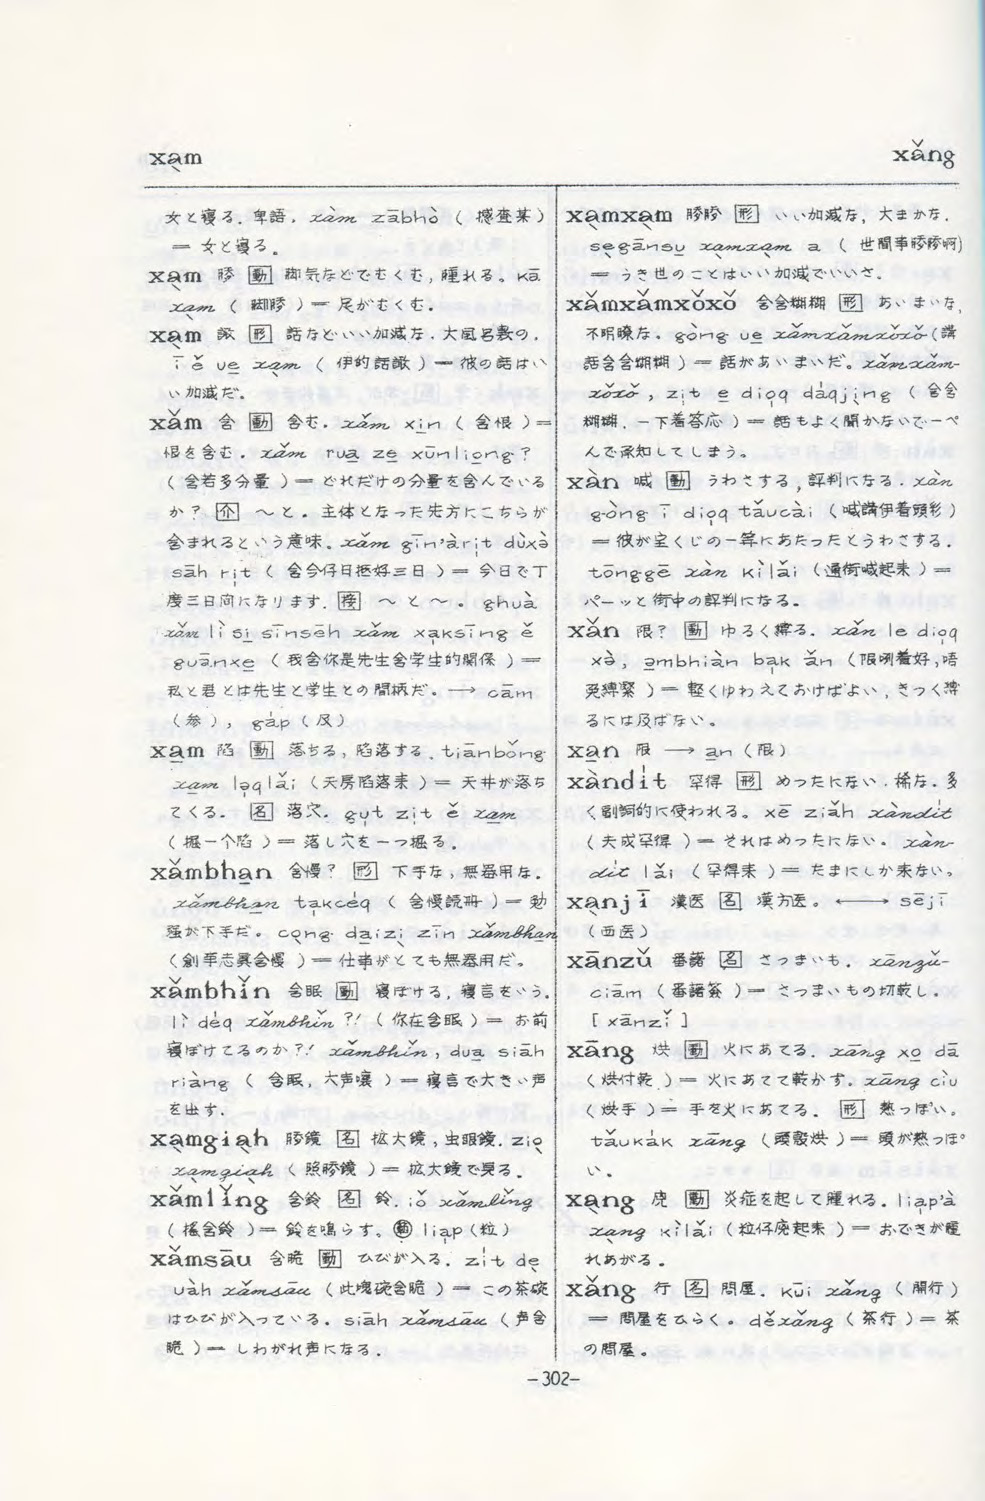 xa̱m
xǎng
女と寝る．卑語．xàm zābhò ( 撼查某 )
＝ 女と寝る。
xa̱m 胗 [動] 脚気などでむくむ，腫れる。kā
xa̱m ( 脚胗 ) ＝ 足がむくむ．
xa̱m 譀 [形] 話などいい加減な．大風呂敷の．
ī ě ue̱ xa̱m ( 伊的話譀 ) ＝ 彼の話はい
い加減だ。
xǎm 含 [動] 含む．xǎm xi̱n ( 含恨 ) ＝
恨を含む．xǎm rua̱ ze̱ xūnliọng ?
( 含若多分量 ) ＝ どれだけの分量を含んでいる
か？ [介] 〜と．主体となった先方にこちらが
含まれるという意味。xǎm gīn'àrịt dùxə̀
sāh rịt ( 含今仔日抵好三日 ) ＝ 今日で丁
度三日間になります．[接] 〜と〜。ghuà
xǎm lì si̱ sīnsēh xǎm xa̱ksīng ě
guānxe̱ ( 我含你是先生含学生的関係 ) ＝
私と君とは先生と学生との間柄だ。→ cām
(参)，gáp (及)
xa̱m 陷 [動] 落ちる，陥落する．tiānbǒng
xa̱m lə̣qlǎi (天房陷落来) ＝ 天井が落ち
てくる． [名] 落穴．gụt zịt ě xa̱m
( 掘一个陷 ) ＝ 落し穴を一つ掘る．
xǎmbha̱n 含慢？ [形] 下手な，無器用な．
xǎmbha̱n tạkcéq ( 含慢読冊 ) ＝ 勉
強が下手だ。cọng da̱izi̱ zīn xǎmbha̱n
(創事志真含慢 ) ＝ 仕事がとても無器用だ。
xǎmbhǐn 含眠 [動] 寝ぼける，寝言をいう．
lì déq xǎmbhǐn ?! ( 你在含眠 ) ＝ お前
寝ぼけてるのか？! xǎmbhǐn , dua̱ siāh
riàng ( 含眠，大声嚷 ) ＝ 寝言で大きい声
を出す．
xa̱mgia̱h 胗鏡 [名] 拡大鏡，虫眼鏡．ziə̣
xa̱mgia̱h ( 照胗鏡 ) ＝ 拡大鏡で見る．
xǎmlǐng 含鈴 [名] 鈴．iǒ xǎmlǐng
( 搖含鈴 ) ＝ 鈴を鳴らす。liạp (粒)
xǎmsāu 含脆 [動] ひびが入る．zít de̱
uàh xǎmsāu ( 此塊碗含脆 ) ＝ この茶碗
はひびが入っている．siāh xǎmsāu ( 声含
脆 ) ＝ しわがれ声になる．
xa̱mxa̱m 胗胗 [形] いい加減な，大まかな．
se̱gānsu̱ xa̱mxa̱m a ( 世間事胗胗啊)
＝ うき世のことはいい加減でいいさ．
xǎmxǎmxǒxǒ 含含糊糊 [形] あいまいな，
不明瞭な．gòng ue̱ xǎmxǎmxǒxǒ (講
話含含糊糊 ) ＝ 話があいまいだ。xǎmxǎm-
xǒxǒ , zịt e̱ diọq dáqjịng ( 含含
糊糊．一下着答応 ) ＝ 話もよく聞かないで一ぺ
んで承知してしまう。
xàn 喊 [動] うわさする，評判になる．xàn
gòng ī diọq tǎucài (喊講伊着頭彩)
＝ 彼が宝くじの一等にあたったとうわさする．
tōnggē xàn kìlǎi (通街喊起来 ) ＝
パーッと街中の評判になる。
xǎn 限？ [動] ゆるく縛る．xǎn le diọq
xə̀, əmbhiàn bák ǎn (限咧着好，唔
免縛緊 ) ＝ 軽くゆわえておけばよい，きつく縛
るには及ばない。
xa̱n 限 → a̱n (限)
xàndít 罕得 [形] めったにない．稀な．多
く副詞的に使われる。xē ziǎh xàndít
( 夫成罕得 ) ＝ それはめったにない。xàn-
dít lǎi (罕得来 ) ＝ たまにしか来ない。
xa̱njī 漢医 [名] 漢方医。←→ sējī
(西医)
xānzǔ 番藷 [名] さつまいも．xānzǔ-
ciām (番藷簽 ) ＝ さつまいもの切乾し．
[ xānzǐ ]
xāng 烘 [動] 火にあてる．xāng xọ dā
(烘付乾 ) ＝ 火にあてて乾かす。xāng cìu
(烘手 ) ＝ 手を火にあてる． [形] 熱っぽい。
tǎukák xāng (頭殼烘 ) ＝ 頭が熱っぽ
い．
xa̱ng [動] 炎症を起して腫れる．liạp'à
xa̱ng kìlǎi ( ) ＝ おできが腫
れあがる．
xǎng 行 [名] 問屋．kūi xǎng ( 開行 )
＝ 問屋をひらく。děxǎng ( 茶行 ) ＝ 茶
の問屋。
−302−